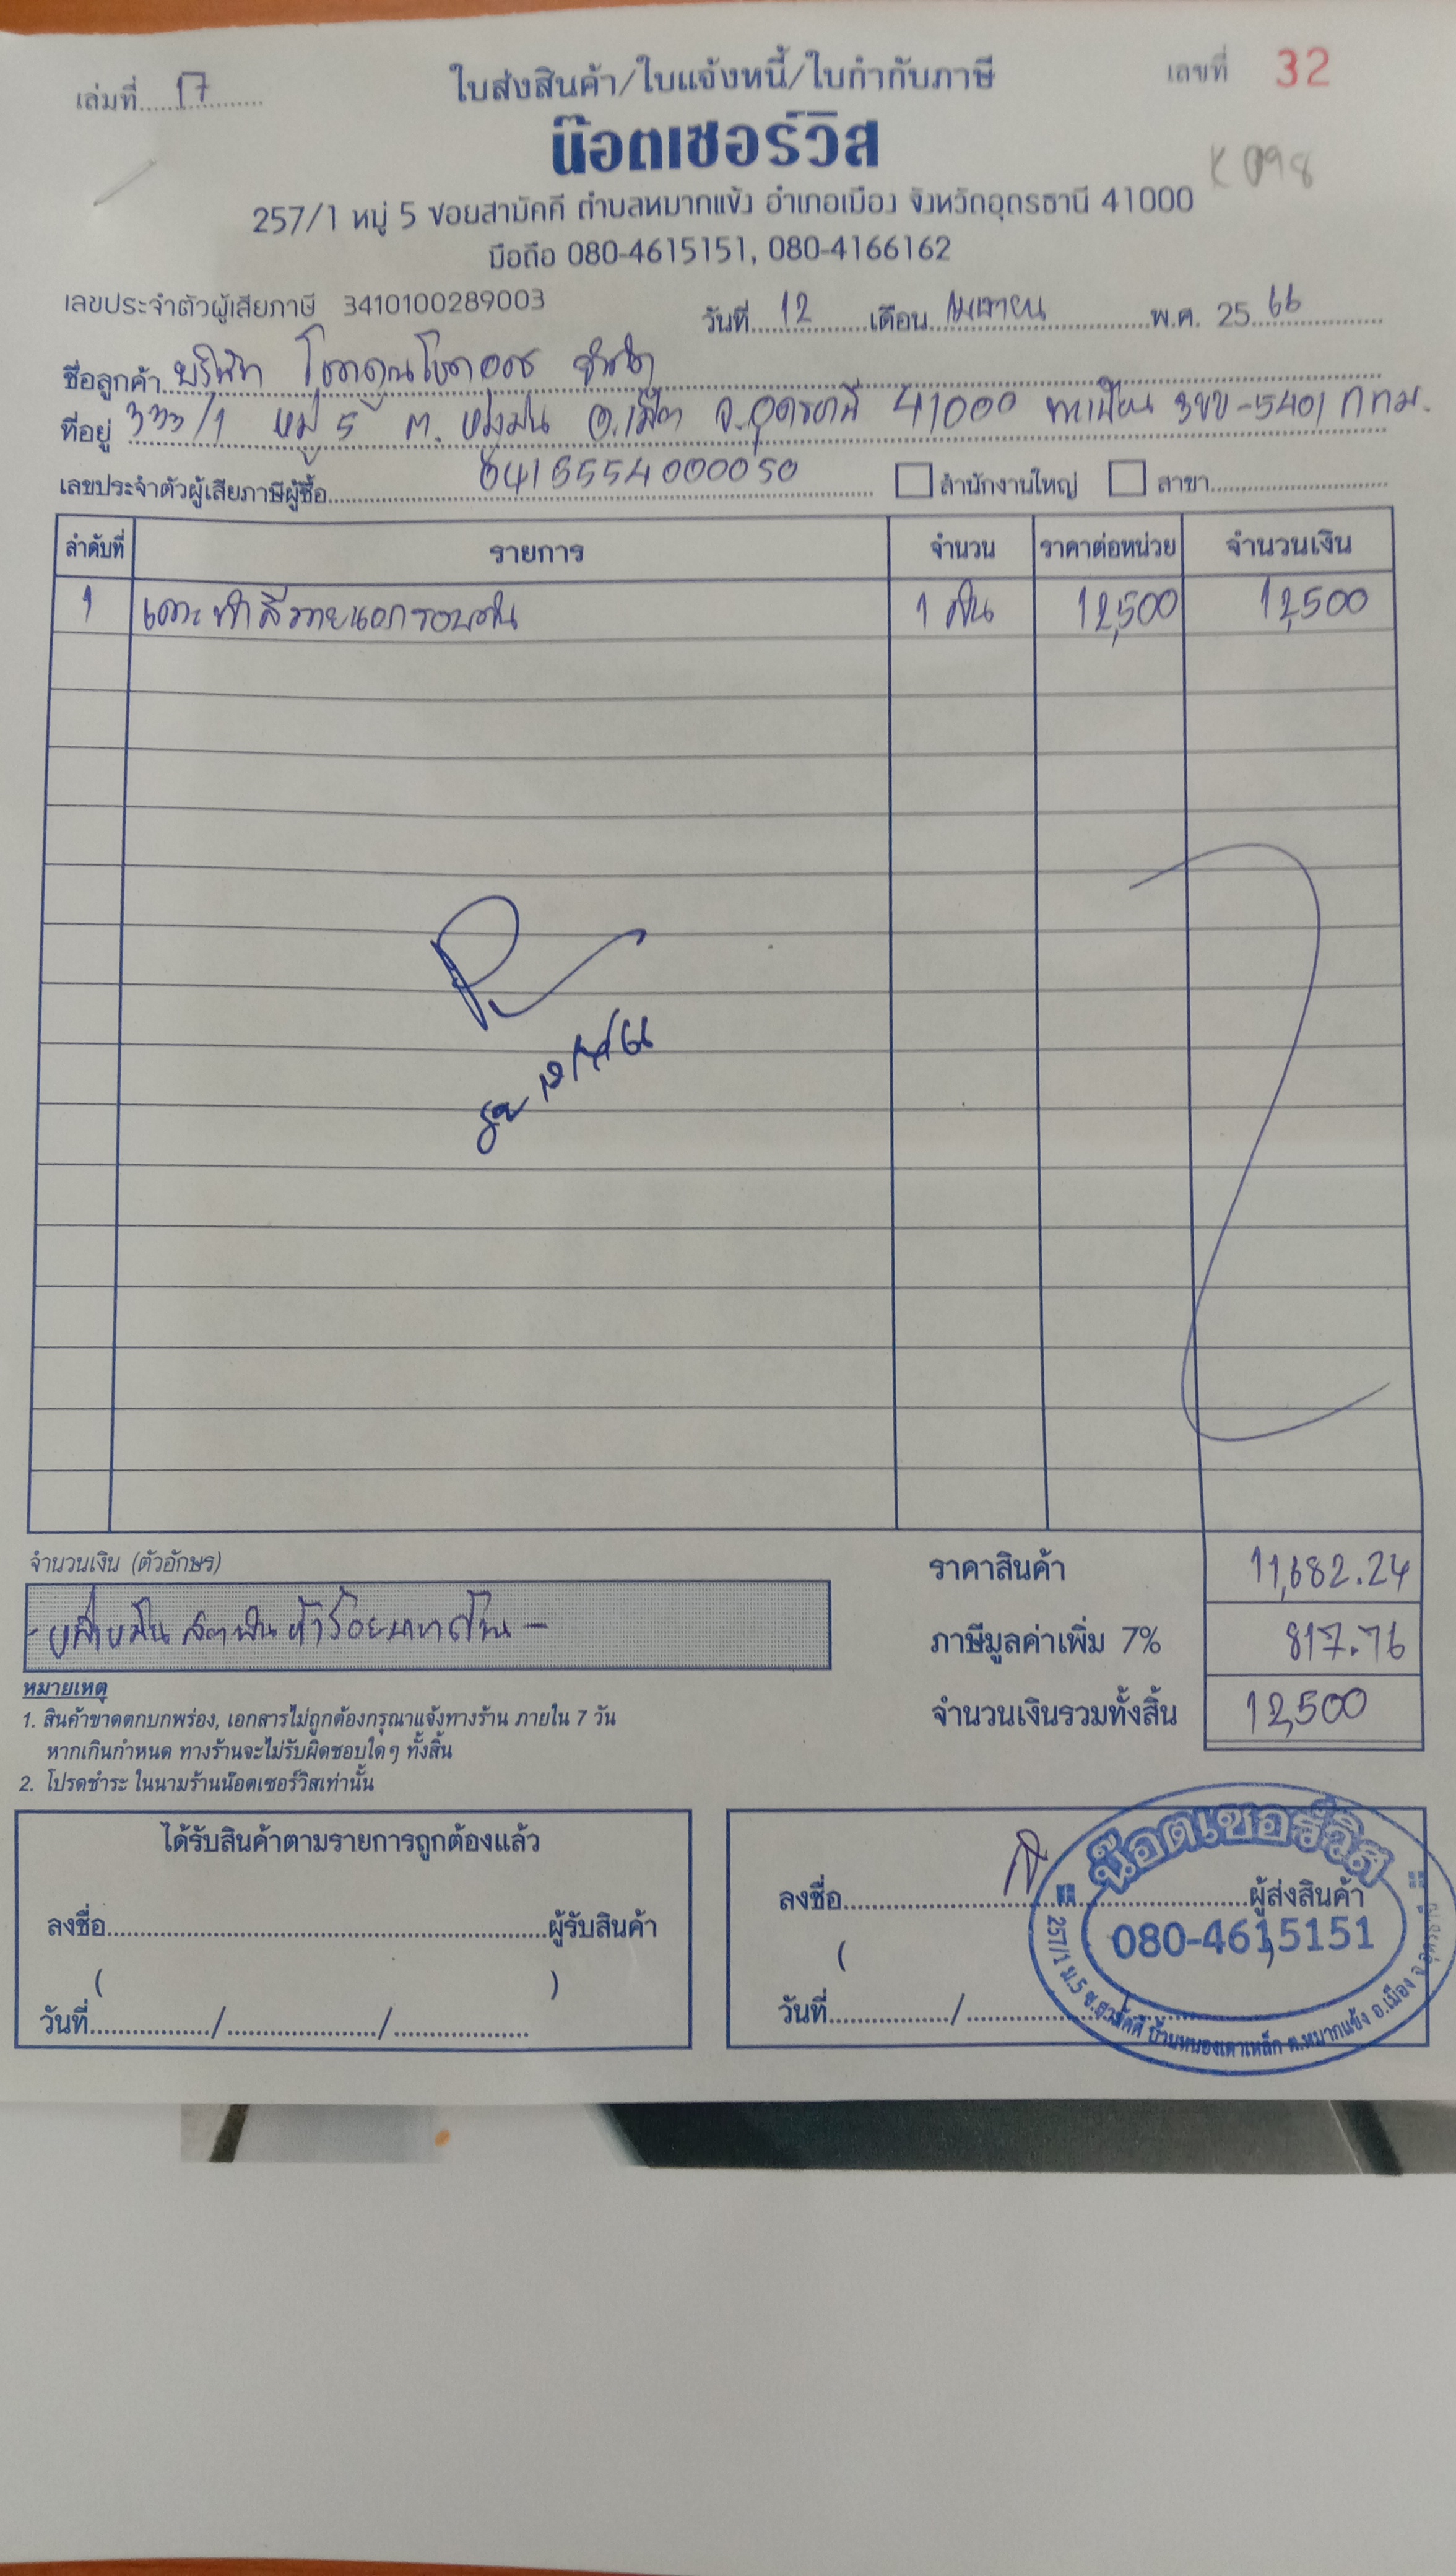 เล่มที่ 17
ใบส่งสินค้า/ใบแจ้งหนี้/ใบกำกับภาษี
เลขที่ 32
น๊อตเซอร์วิส
K 098
257/1 หมู่ 5 ซอยสามัคคี ตำบลหมากแข้ง อำเภอเมือง จังหวัดอุดรธานี 41000
มือถือ 080-4615151, 080-4166162
เลขประจำตัวผู้เสียภาษี 3410100289003
วันที่ 12 เดือน เมษายน พ.ศ. 25 66
ชื่อลูกค้า บริษัท จำกัด
ที่อยู่ 333/1 หมู่ 5 ต. อ.เมือง จ.อุดรธานี 41000 ทะเบียน 3ขข-5401 กทม.
เลขประจำตัวผู้เสียภาษีผู้ซื้อ 0415554000050 สำนักงานใหญ่ สาขา
ลำดับที่ รายการ จำนวน ราคาต่อหน่วย จำนวนเงิน
1 เคาะทำสีภายนอกรอบคัน 1 คัน 12,500 12,500
จำนวนเงิน (ตัวอักษร)
- หนึ่งหมื่นสองพันห้าร้อยบาทถ้วน -
ราคาสินค้า 11,682.24
ภาษีมูลค่าเพิ่ม 7% 817.76
จำนวนเงินรวมทั้งสิ้น 12,500
หมายเหตุ
1. สินค้าขาดตกบกพร่อง, เอกสารไม่ถูกต้องกรุณาแจ้งทางร้าน ภายใน 7 วัน
หากเกินกำหนด ทางร้านจะไม่รับผิดชอบใดๆ ทั้งสิ้น
2. โปรดชำระ ในนามร้านน๊อตเซอร์วิสเท่านั้น
ได้รับสินค้าตามรายการถูกต้องแล้ว
ลงชื่อ ผู้รับสินค้า
( )
วันที่ / /
ลงชื่อ ผู้ส่งสินค้า
( )
วันที่ / /
น๊อตเซอร์วิส
080-4615151
257/1 ม.5 ซ.สามัคคี บ้านหนองเตาเหล็ก ต.หมากแข้ง อ.เมือง จ.อุดรธานี